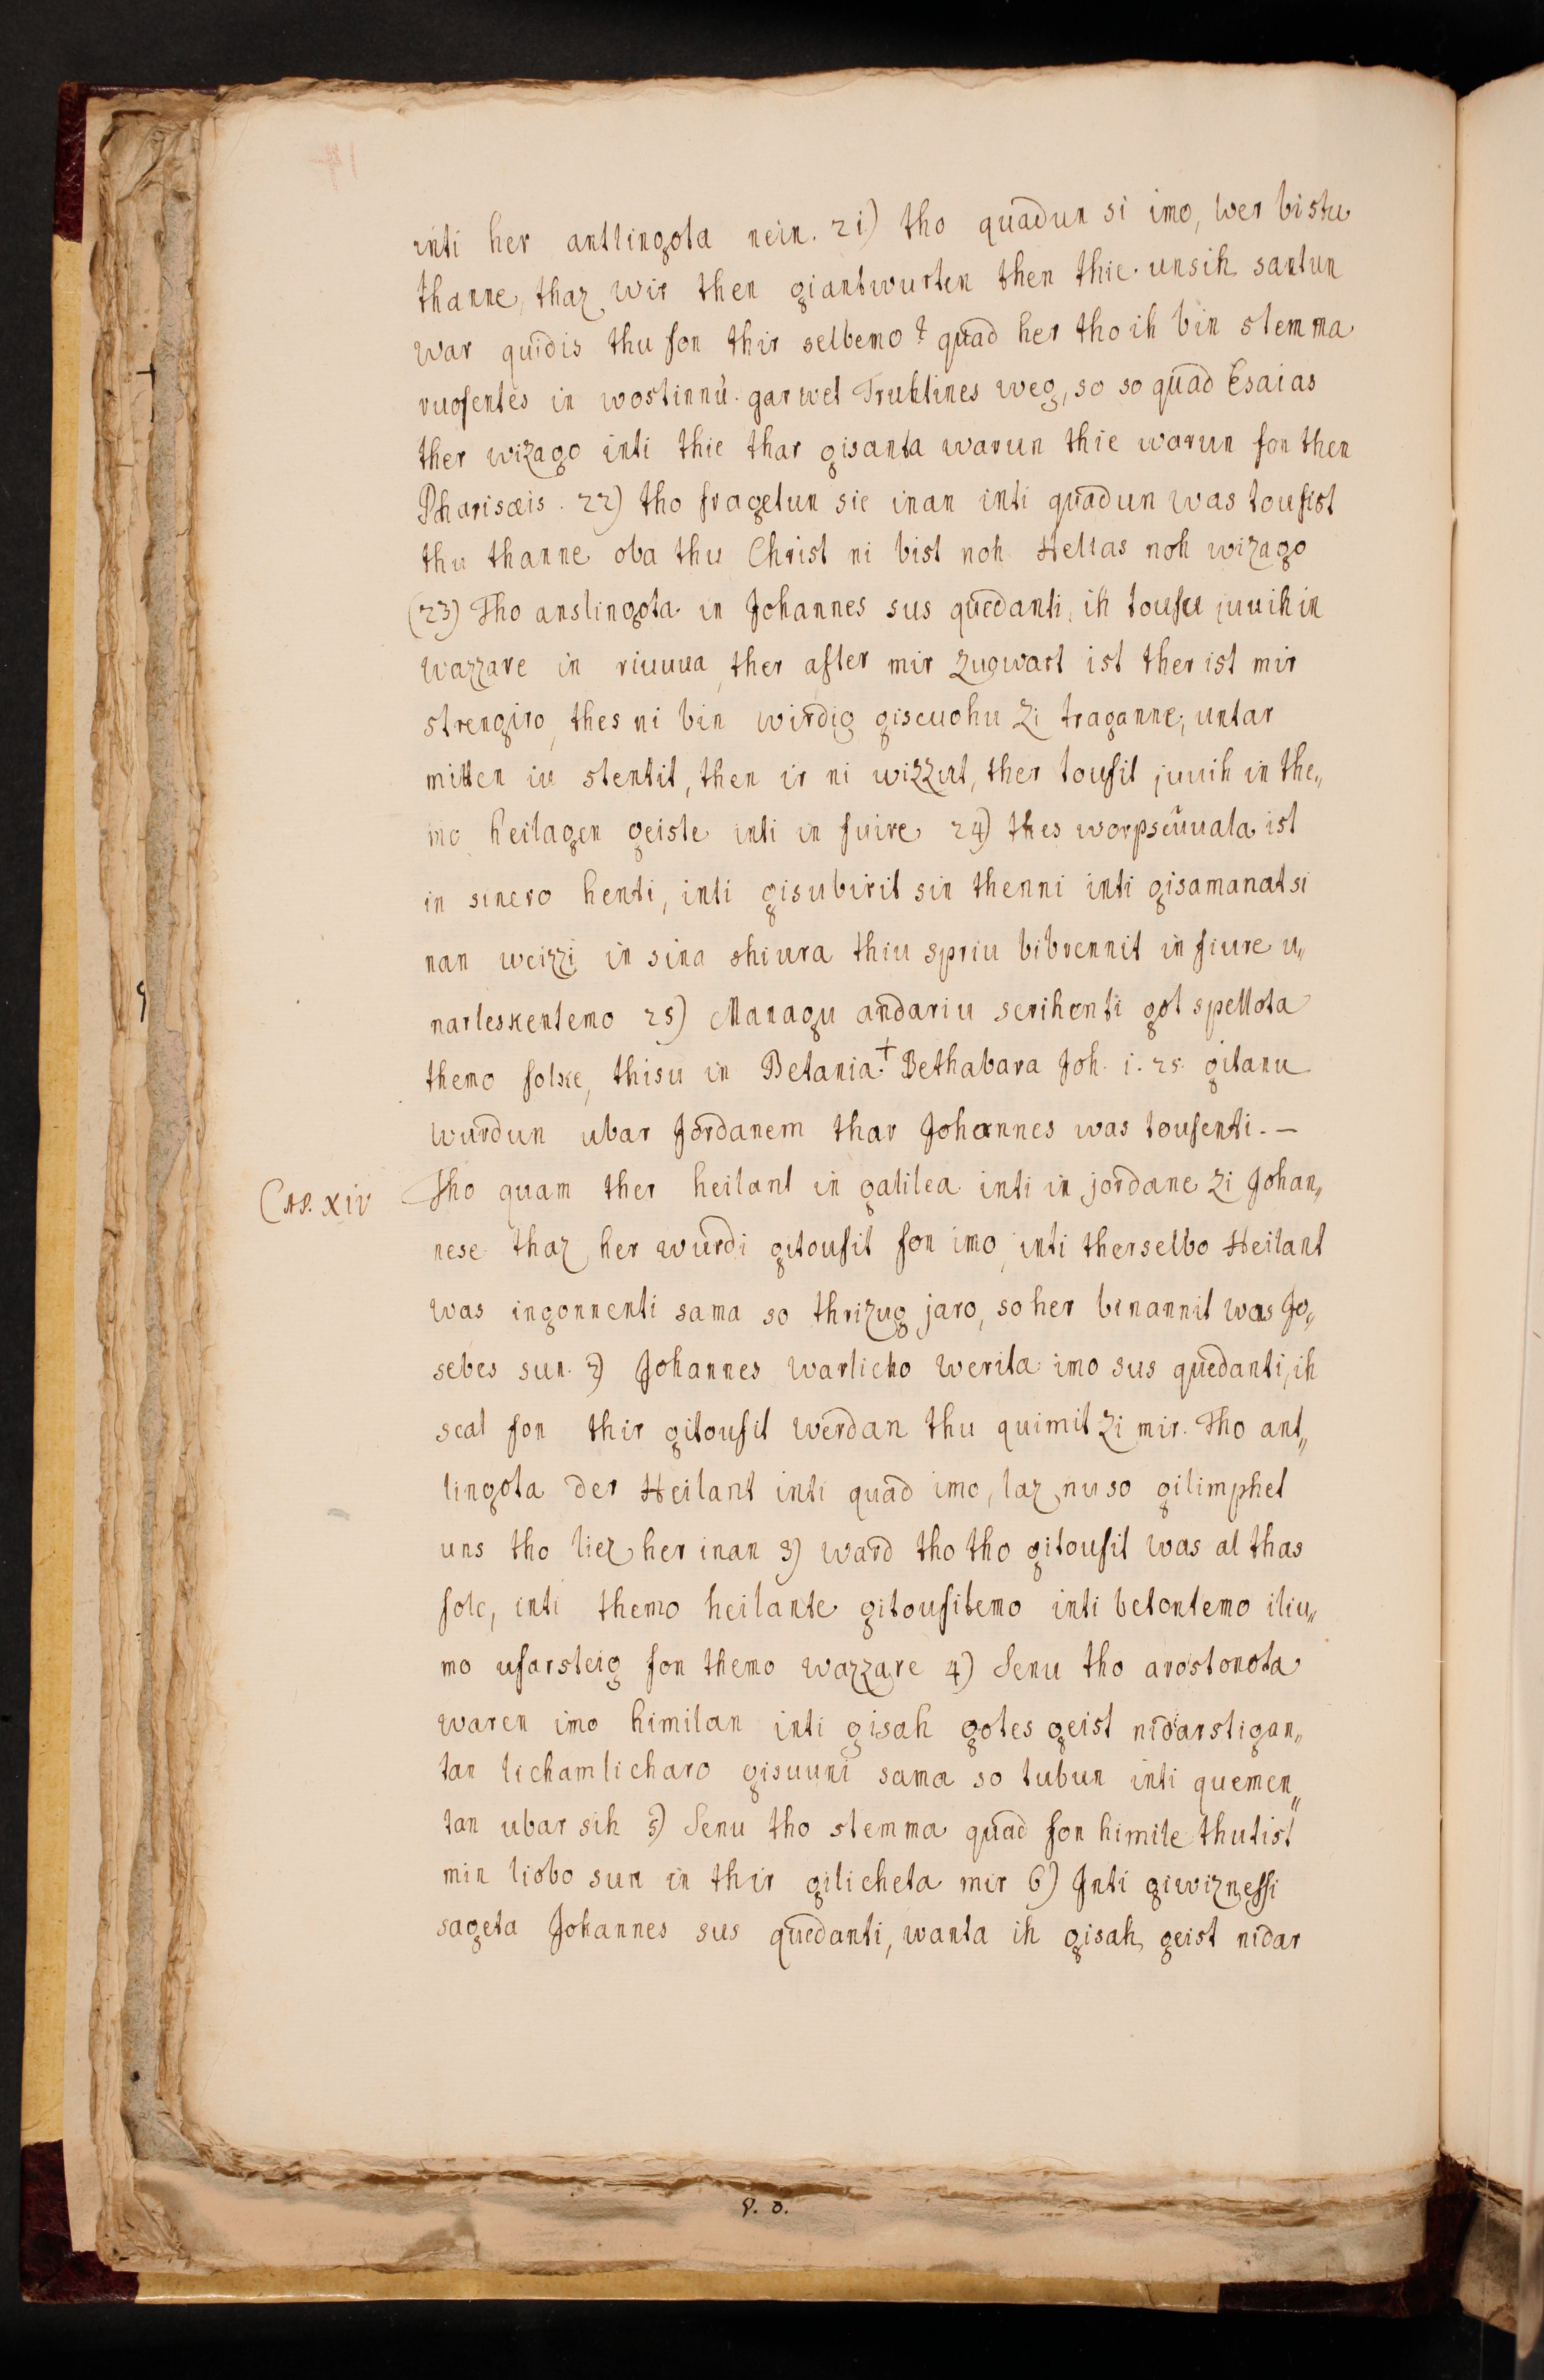 inti her antlingota nein. 21) tho quadun si imo, wer bistu
thanne, thaz wir then giantwurten then thie unsih santun
war quidis thu fon thir selbemo? quad her tho ih bin stemma
ruofentes in wostinnu. garwet Truhtines weg, so so quad Esaias
ther wizago inti thie thar gisanta warun thie warun fon then
Pharisæis. 22) tho fragetun sie inan inti quadun was toufist
thu thanne oba thu Christ ni bist noh Helias noh wizago
(23) Tho anslingota in Johannes sus quedanti, ih toufu juuih in
wazzare in riuuua, ther after mir zugwart ist ther ist mir
strengiro, thes ni bin wirdig giscuohu zi traganne; untar
mitten iu stentit, then ir ni wizzut, ther toufit juuih in the„
mo heilagen geiste inti in fuire 24) thes worpscuuala ist
in sinero henti, inti gisubirit sin thenni inti gisamanat si
nan weizzi in sina shiura thiu spriu bibrennit in fiure u„
narleskentemo 25) Managu andariu scrihenti got spellota
themo folke, thisu in Betania.+ Bethabara Joh. i. 25. gitanu
wurdun ubar Jordanem thar Johannes was toufenti. —
Cap. XIV Tho quam ther heilant in galilea inti in jordane zi Johan„
nese thaz her wurdi gitoufit fon imo, inti therselbo Heilant
was ingonnenti sama so thrizug jaro, so her binannit was Jo„
sebes sun. 2) Johannes warlicho werita imo sus quedanti, ih
scal fon thir gitoufit werdan thu quimit zi mir. Tho ant„
lingota der Heilant inti quad imo, laz nu so gilimphet
uns tho liez her inan 3) ward tho tho gitoufit was al thas
folc, inti themo heilante gitoufitemo inti betontemo iliu„
mo ufarsteig fon themo wazzare 4) Senu tho arostonota
waren imo himilan inti gisah gotes geist nidarstigan„
tan lichamlicharo gisuuni sama so tubun inti quemen„
tan ubar sih 5) Senu tho stemma quad fon himile thutist
min liobo sun in thir gilicheta mir 6) Inti giwiznessi
sageta Johannes sus quedanti, wanta ih gisah geist nidar